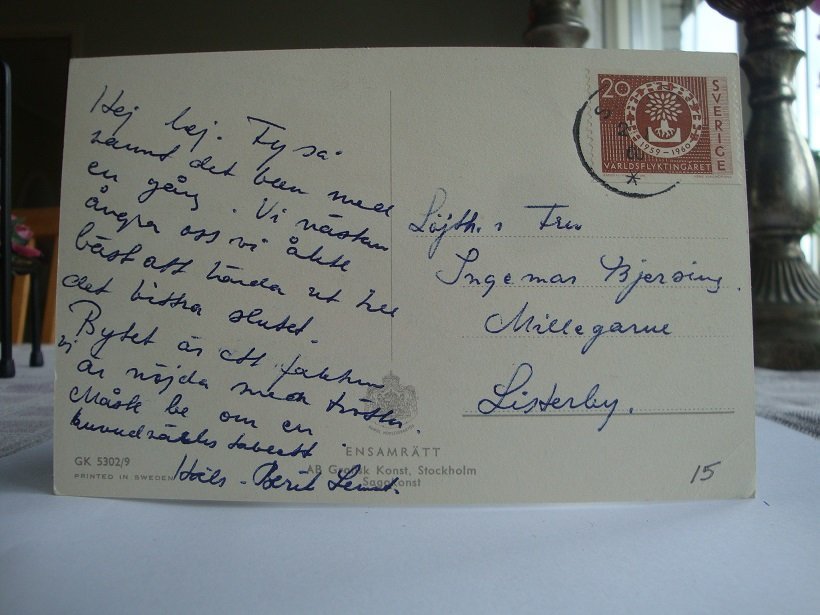 Hej hej. Fy så
tannt det blev med
en gång. Vi nästan
ångra oss vi åkte
bäst att hända ut till
det bittra slutet.
Bytet är ett faktum
vi är nöjda med trösten.
Måste be om en
huvudvärks tablett
Häls - Berit Lennart.
GK 5302/9
PRINTED IN SWEDEN
ENSAMRÄTT
AB Grafisk Konst, Stockholm
Sagokonst
20
SVERIGE
1959-1960
VÄRLDSFLYKTINGÅRET
Löjtn. o Fru
Ingemar Bjersing.
Millegarne
Listerby.
15